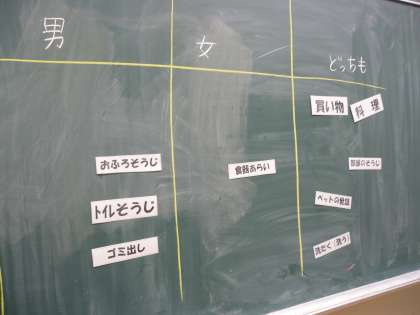 男
女
どっちも
買い物
料理
おふろそうじ
食器あらい
部屋のそうじ
トイレそうじ
ペットの世話
ゴミ出し
洗たく（洗う）